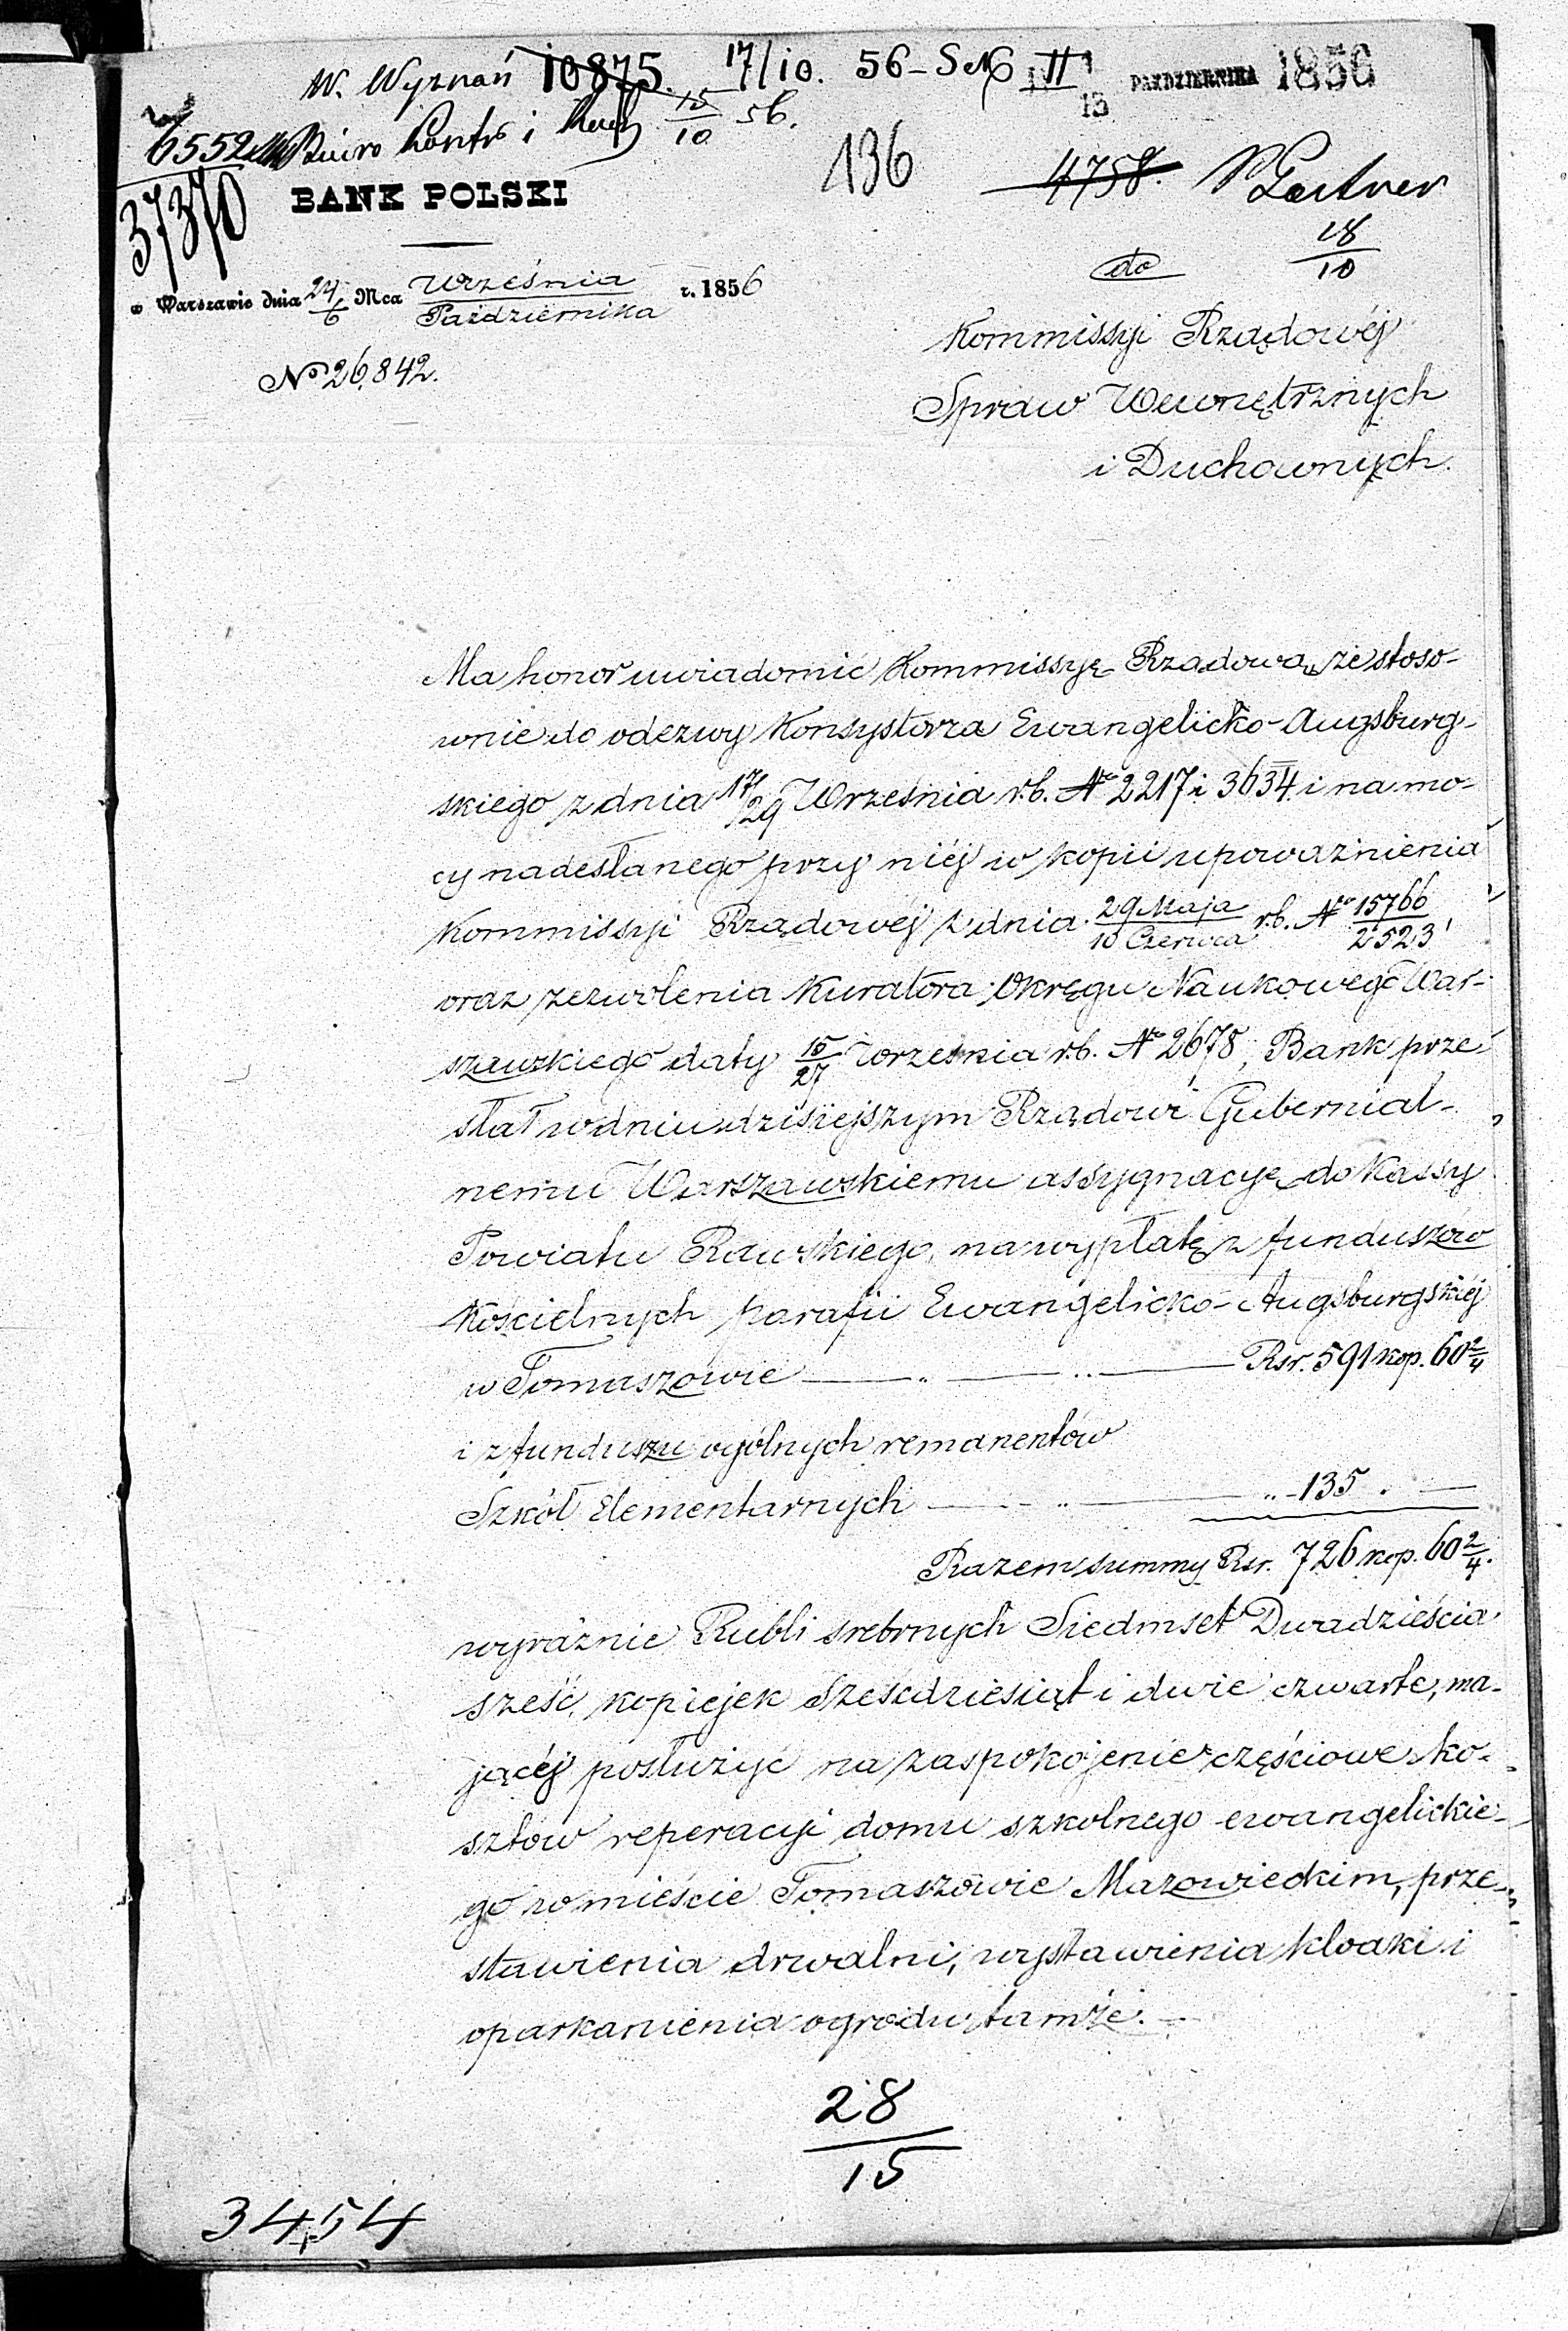 W. Wyznań 10875. 17/10. 56 - II PAZDZIERNIKA 1856
6552 Biuro Kontr i 15/10 56. 13
37370
136
4758.
18/10
BANK POLSKI
w Warszawie dnia 24/6 Mca Września/Października r. 1856
No 26,842.
do
Kommissyi Rządowéj
Spraw Wewnętrznych
i Duchownych.
Ma honor uwiadomić Kommissyę Rządową, że stoso-
wnie do odezwy Konsystorza Ewangelicko-Augsburg-
skiego z dnia 17/29 Września r.b. No 2217 i 3634 i na mo-
cy nadesłanego przy niéj w kopii upoważnienia
Kommissyi Rządowéj z dnia 29 Maja/10 Czerwca r.b. No 15766/2523
oraz zezwolenia Kuratora Okręgu Naukowego War-
szawskiego daty 15/27 Września r.b. No 2678, Bank prze-
słał w dniu dzisiejszym Rządowi Gubernial-
nemu Warszawskiemu assygnacyę do Kassy
Powiatu Rawskiego, na wypłatę z funduszów
Kościelnych parafii Ewangelicko-Augsburgskiéj
w Tomaszowie — .. — .. — Rsr. 591 kop. 60 2/4
i z funduszu ogólnych remanentów
Szkół Elementarnych — .. — .. 135 . —
Razem summy Rsr. 726 kop. 60 2/4.
wyraźnie Rubli srebrnych Siedmset Dwadzieścia
sześć, kopiejek sześćdziesiąt i dwie czwarte, ma-
jącéj posłużyć na zaspokojenie częściowe ko-
sztów reperacyi domu szkolnego ewangelickie-
go w mieście Tomaszowie Mazowieckim, prze-
stawienia drwalni, wystawienia kloaki i
oparkanienia ogrodu tamże.
28/15
3454